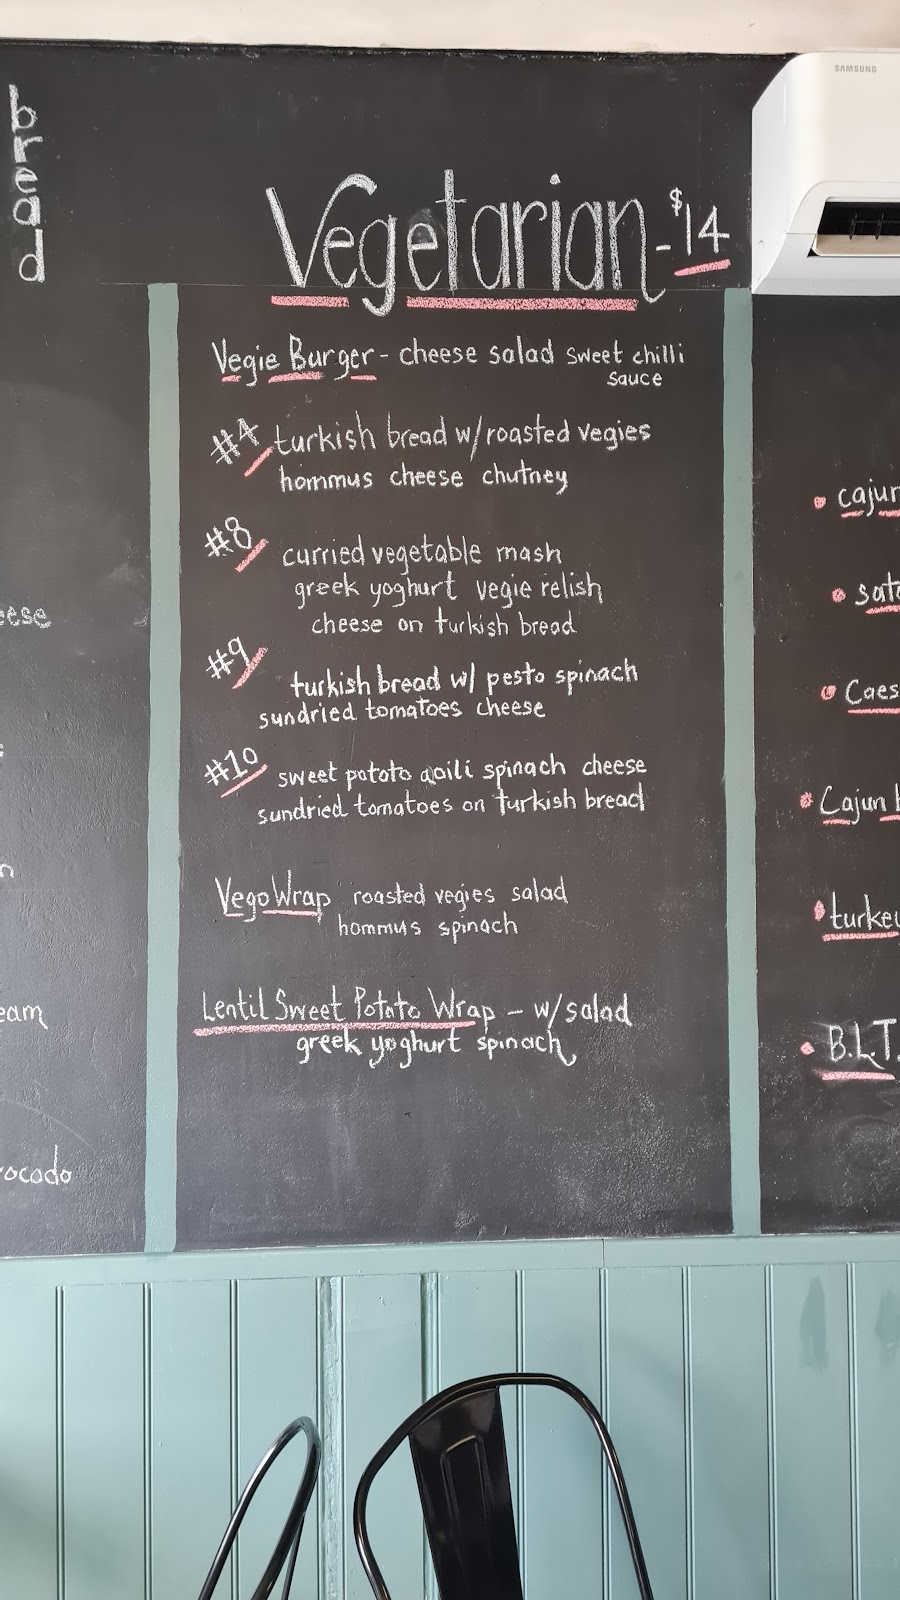 bread
SAMSUNG
Vegetarian - $14
Vegie Burger - cheese salad sweet chilli
sauce
#4 turkish bread w/ roasted vegies
hommus cheese chutney
#8 curried vegetable mash
greek yoghurt vegie relish
cheese on turkish bread
#9 turkish bread w/ pesto spinach
sundried tomatoes cheese
#10 sweet potato aoili spinach cheese
sundried tomatoes on turkish bread
Vego Wrap roasted vegies salad
hommus spinach
Lentil Sweet Potato Wrap - w/ salad
greek yoghurt spinach
Cajun
turkey
B.L.T.